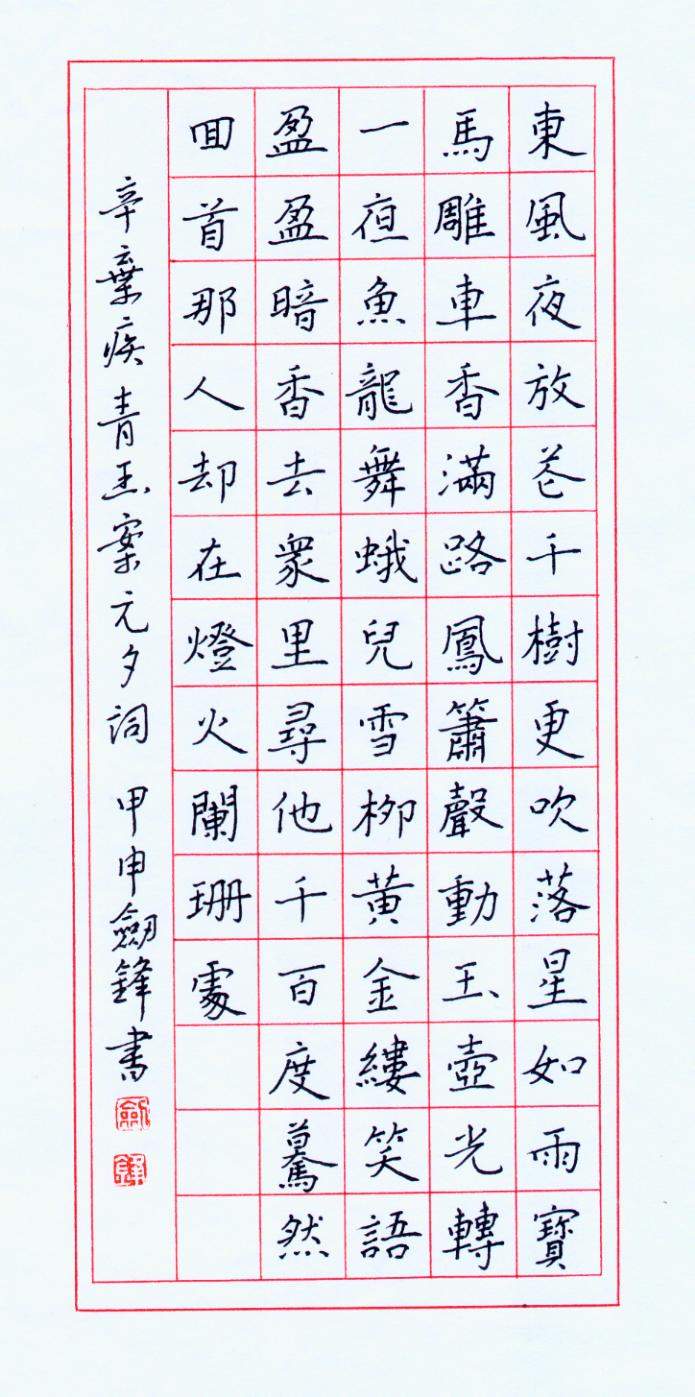 東風夜放花千樹更吹落星如雨寶
馬雕車香滿路鳳簫聲動玉壺光轉
一夜魚龍舞蛾兒雪柳黃金縷笑語
盈盈暗香去衆里尋他千百度驀然
回首那人却在燈火闌珊處
辛棄疾青玉案元夕詞 甲申劍鋒書
劍
鋒